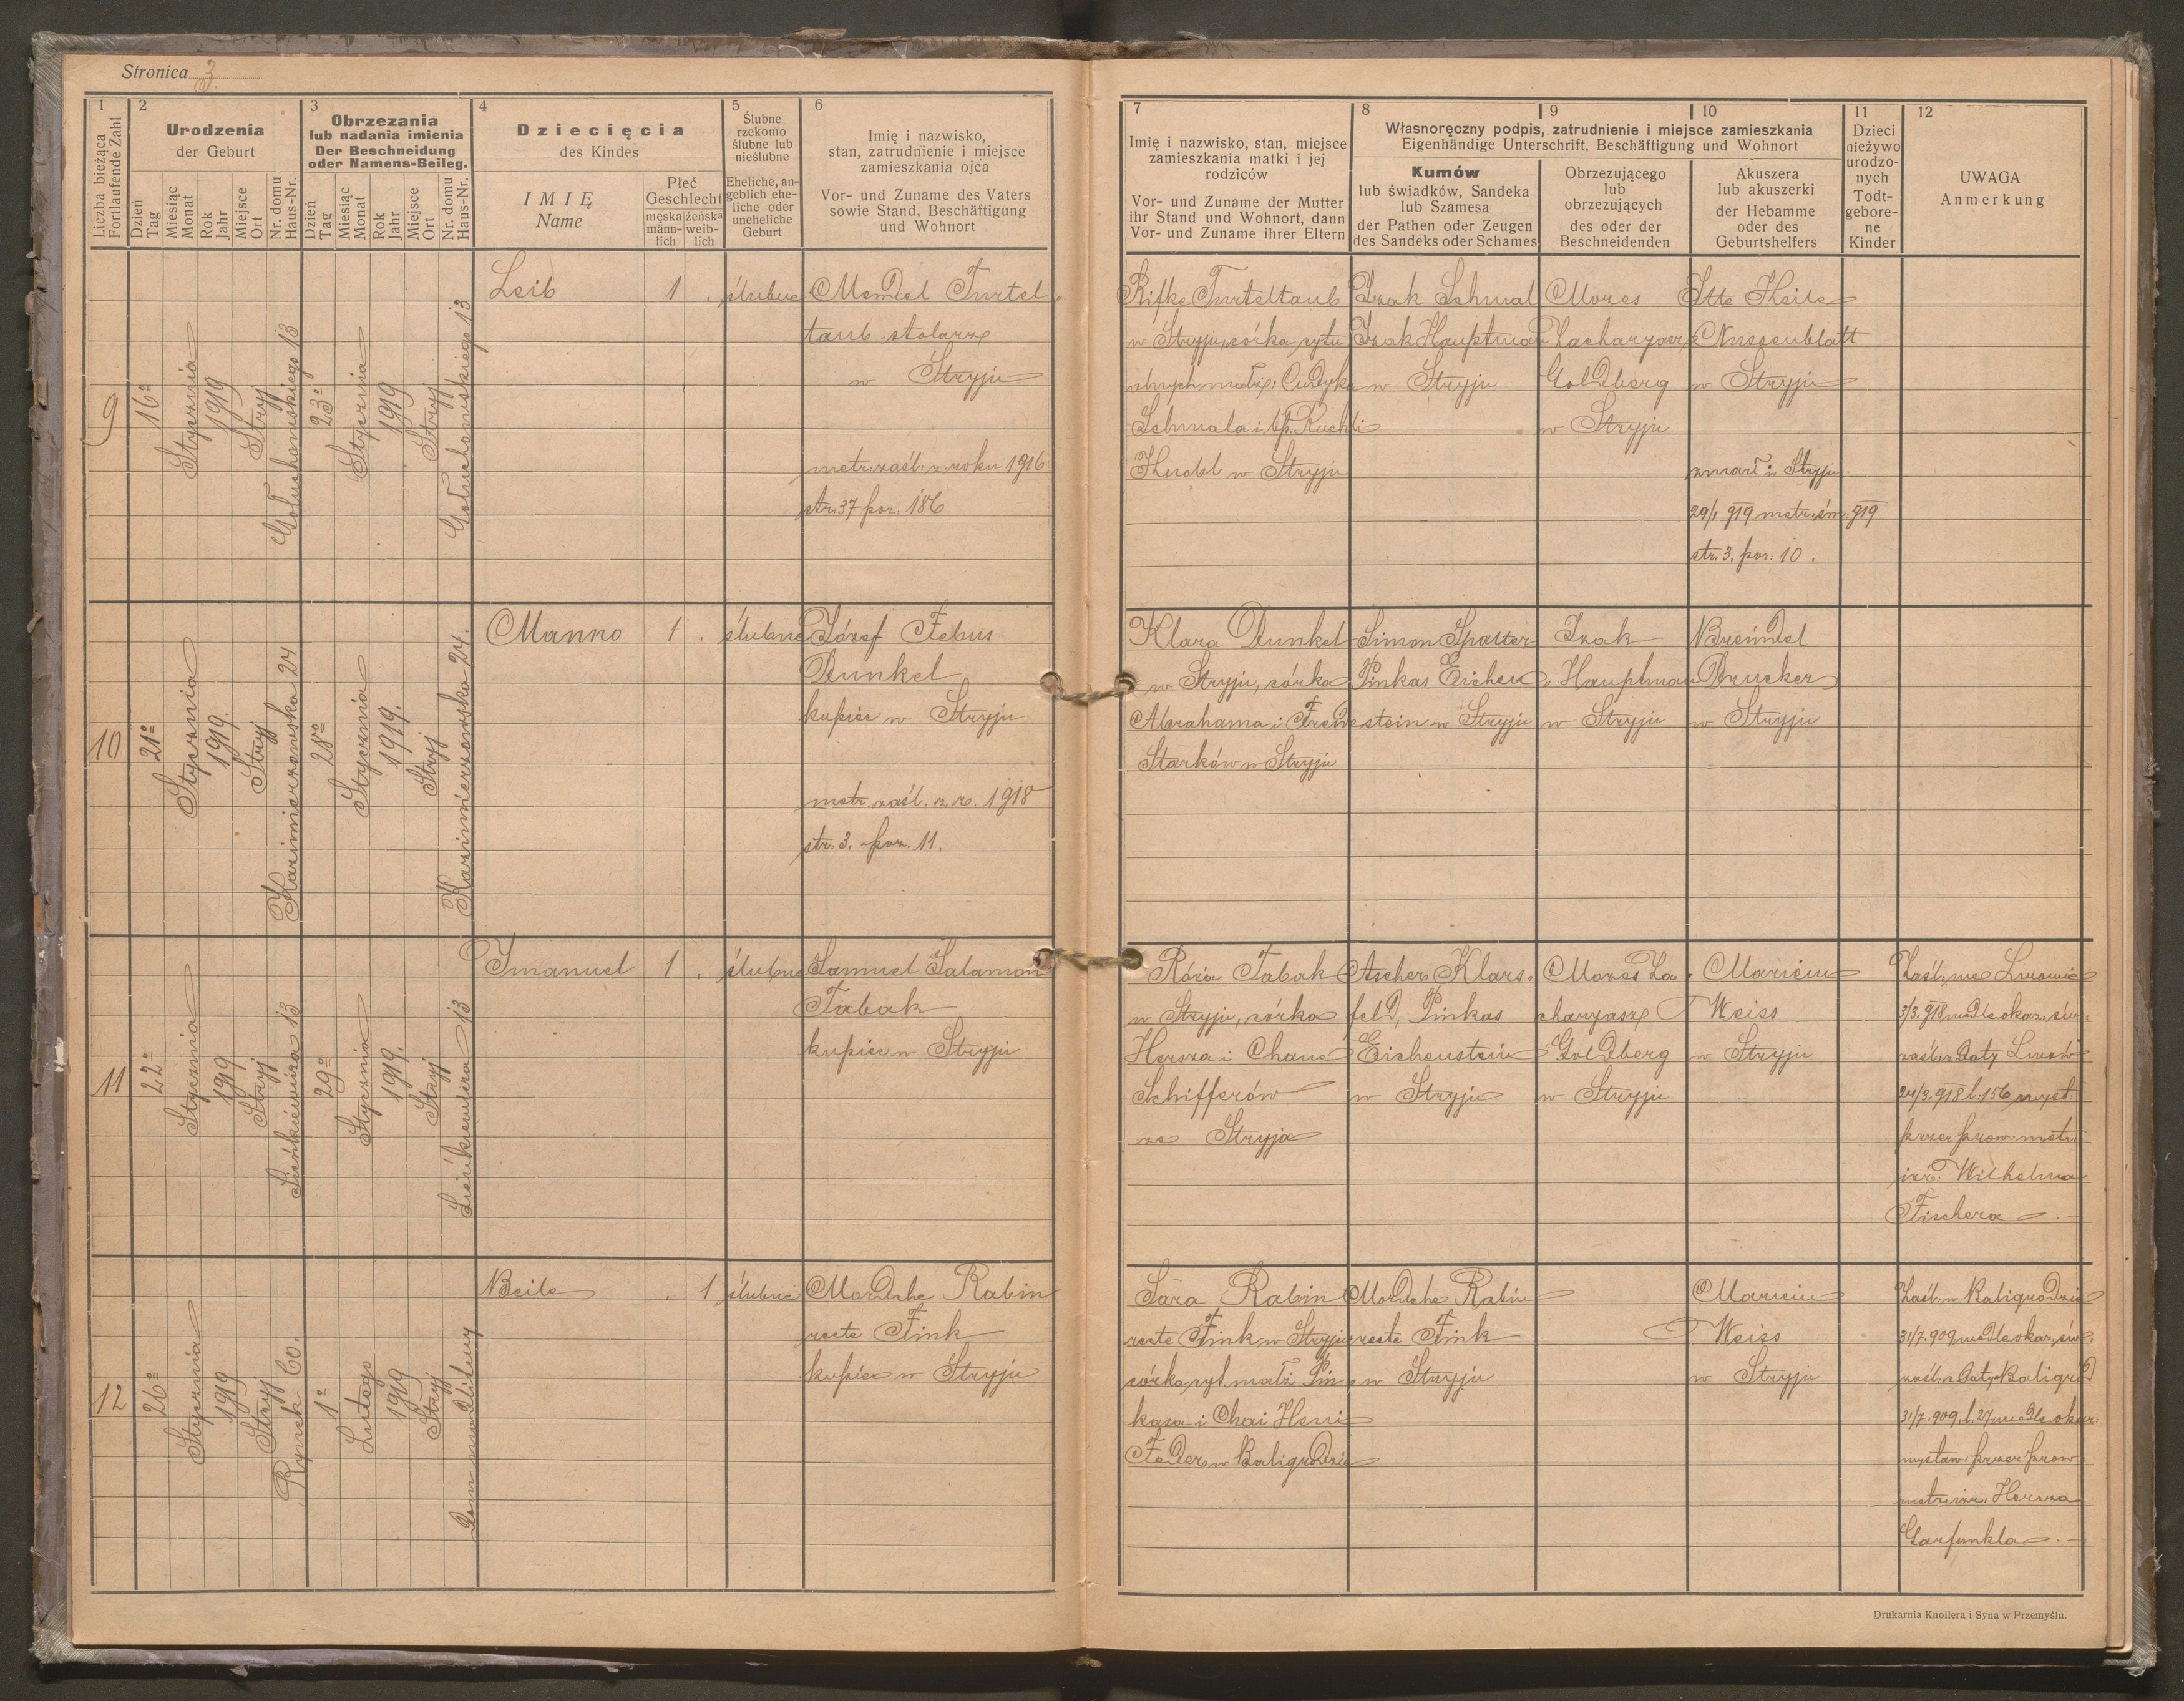 Stronica 3.
1
Liczba bieżąca
Fortlaufende Zahl
2
Urodzenia
der Geburt
Dzień
Tag
Miesiąc
Monat
Rok
Jahr
Miejsce
Ort
Nr. domu
Haus-Nr.
3
Obrzezania
lub nadania imienia
Der Beschneidung
oder Namens-Beileg.
Dzień
Tag
Miesiąc
Monat
Rok
Jahr
Miejsce
Ort
Nr. domu
Haus-Nr.
4
Dziecięcia
des Kindes
IMIĘ
Name
Płeć
Geschlecht
męska
männ-
lich
żeńska
weib-
lich
5
Ślubne
rzekomo
ślubne lub
nieślubne
Eheliche, an-
geblich ehe-
liche oder
uneheliche
Geburt
6
Imię i nazwisko,
stan, zatrudnienie i miejsce
zamieszkania ojca
Vor- und Zuname des Vaters
sowie Stand, Beschäftigung
und Wohnort
7
Imię i nazwisko, stan, miejsce
zamieszkania matki i jej
rodziców
Vor- und Zuname der Mutter
ihr Stand und Wohnort, dann
Vor- und Zuname ihrer Eltern
8
9
10
Własnoręczny podpis, zatrudnienie i miejsce zamieszkania
Eigenhändige Unterschrift, Beschäftigung und Wohnort
Kumów
lub świadków, Sandeka
lub Szamesa
der Pathen oder Zeugen
des Sandeks oder Schames
Obrzezującego
lub
obrzezujących
des oder der
Beschneidenden
Akuszera
lub akuszerki
der Hebamme
oder des
Geburtshelfers
11
Dzieci
nieżywo
urodzo-
nych
Todt-
gebore-
ne
Kinder
12
UWAGA
Anmerkung
9
16º
Stycznia
1919
Stryj
Gołuchowskiego 13
23º
Stycznia
1919
Stryj
Gołuchowskiego 13
Leib
1 .
ślubne
Mendel Turtel
taub stolarz
w Stryju
metr. zaśl. z roku 1916
str. 37 poz. 186
Rifke Turteltaub
w Stryju, córka rytu
alnych małż. Cudyka
Schmala i
Hudel w Stryju
Izak Schmal
Izak Hauptman
w Stryju
Mozes
Zacharyasz
Goldberg
w Stryju
Itte Heile
Nussenblatt
w Stryju
zmarł w Stryju
29/1 919 metr. śm. 919
str. 3. poz. 10.
10
21º
Stycznia
1919.
Stryj
Kazimierzowska 24
28º
Stycznia
1919.
Stryj
Kazimierzowska 24.
Manno
1 .
ślubne
Józef Febus
Dunkel
kupiec w Stryju
metr. zaśl. z r. 1918
str. 3. poz. 11.
Klara Dunkel
w Stryju, córka
Abrahama i Frede
Starków w Stryju
Simon Spatter
Pinkas Eichen
stein w Stryju
Izak
Hauptman
w Stryju
Breindel
Drucker
w Stryju
11
22º
Stycznia
1919
Stryj
Sienkiewicza 13
29º
Stycznia
1919.
Stryj
Sienkiewicza 13
Imanuel
1 .
ślubne
Samuel Salamon
Tabak
kupiec w Stryju
Róża Tabak
w Stryju, córka
Hersza i Chane
Schifferów
ze Stryja
Ascher Klars-
feld, Pinkas
Eichenstein
w Stryju
Mozes Za-
charyasz
Goldberg
w Stryju
Mariem
Weiss
w Stryju
Zaśl. we Lwowie
3/3. 918 wedle okaz. św.
zaśl. z daty Lwów
24/3. 918 l. 156 wyst.
przez prow. metr.
izr. Wilhelma
Fischera .-
12
26º
Stycznia
1919
Stryj
Rynek 60.
1º
Lutego
1919
Stryj
Dom modlitwy
Beile
. 1
ślubne
Mordche Rabin
recte Fink
kupiec w Stryju
Sara Rabin
recte Fink w Stryju
córka ryt. małż. Pin
kasa i Chai Heni
Feder w Baligrodzie
Mordche Rabin
recte Fink
w Stryju
Mariem
Weiss
w Stryju
Zaśl. w Baligrodzie
31/7. 909 wedle okaz. św.
zaśl. z daty Baligród
31/7. 909. l. 27 wedle okaz.
wystaw. przez prow.
metr. izr. Hersza
Garfunkla .-
Drukarnia Knollera i Syna w Przemyślu.